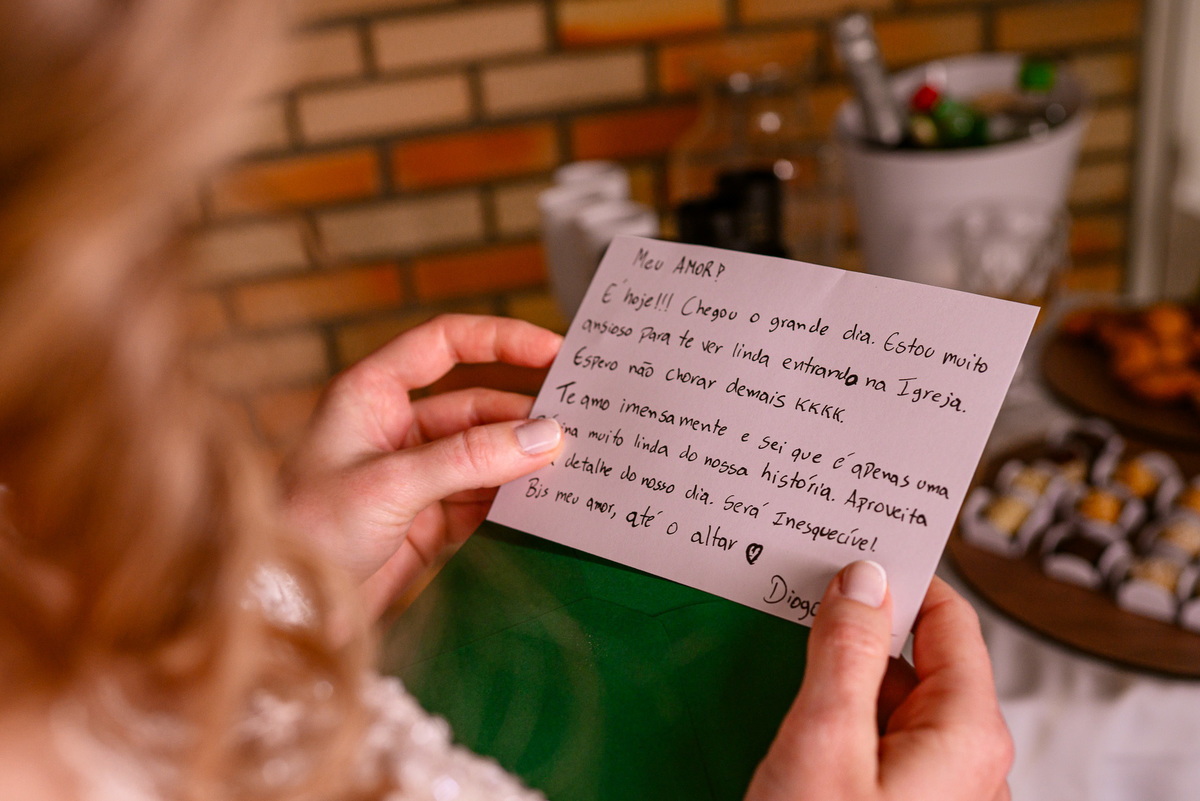 Meu AMOR!
É hoje!!! Chegou o grande dia. Estou muito
ansioso para te ver linda entrando na Igreja.
Espero não chorar demais KKKK.
Te amo imensamente e sei que é apenas uma
muito linda do nossa história. Aproveita
detalhe do nosso dia. Será Inesquecível.
Bjs meu amor, até o altar
Diogo